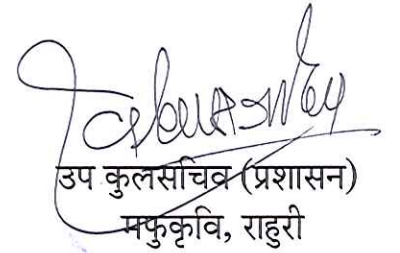 उप कुलसचिव (प्रशासन)
मफुकृवि, राहुरी